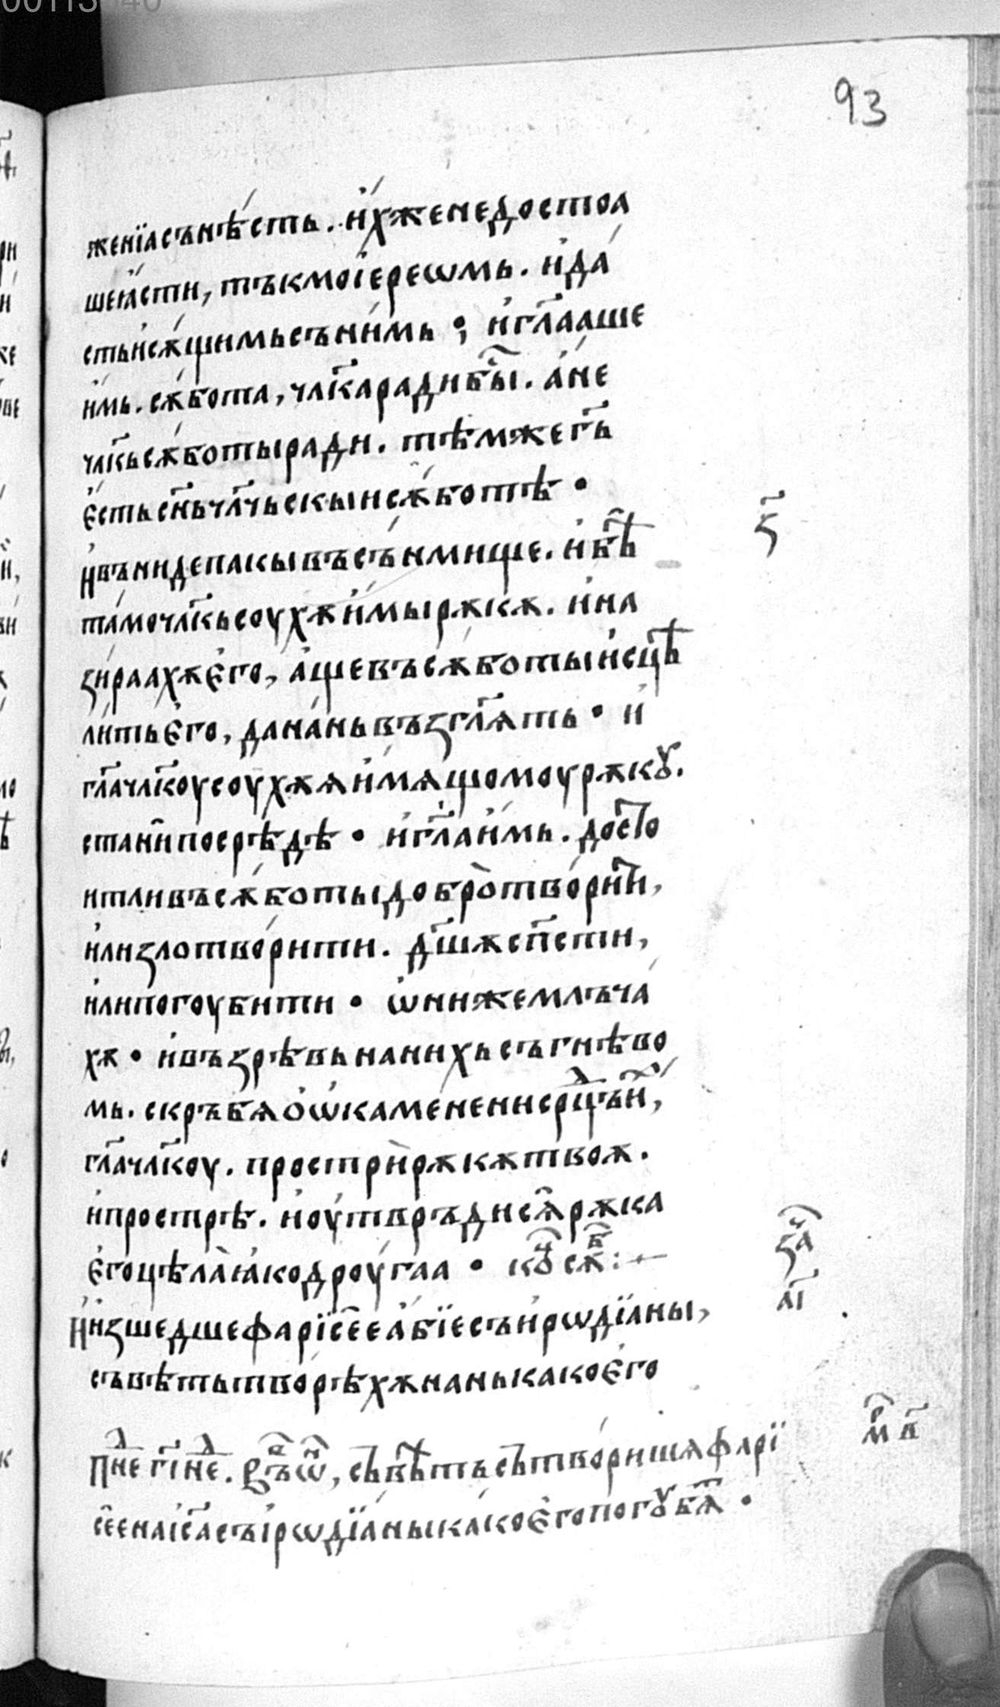 93
женїа сънѣсть. и҆хже не достоа
ше ꙗсти, тъкмо і҆ереѡмь. и҆ да
сть и҆ сѫщимь съ ни́мь ⁏ и҆ гл҃ааше
и҆мь. сѫбота, чл҃ка ради бы҃. а҆ не
чл҃кь сѫботы ради. тѣмже гь҃
є҆сть сн҃ь чл҃чьскы и сѫботѣ •
И҆ въниде пакы въ съньмище. и҆ бѣ҃
ꙁ҃
тамо чл҃кь соухѫ и҆мы рѫкѫ. и҆ на
ꙁираахѫ є҆го, а҆ще въ сѫботы и҆сцѣ
лить є҆го, да нань въꙁгл҃ѧть • и҆
гл҃а чл҃коу соухѫѧ и҆мѧщомоу рѫкꙋ.
стани посрѣдѣ • и҆ гл҃а и҆мь. досто
ит ли въ сѫботы добро творити,
и҆ли ꙁло творити. дш҃ѫ сп҃сти,
и҆ли погоубити • ѡ҆ни же млъча
хѫ • и҆ въꙁрѣвь на нихь съ гнѣво
мь. скръбѧ о҆ ѡ҆каменени срⷣць и҆ⷯ,
гл҃а чл҃коу. простри рѫкѫ твоѫ.
и҆ прострѣ. и҆ оу҆твръди сѧ рѫка
є҆го цѣла ꙗко дроугаа • кѡⷩ҇ сѫⷠ:
ꙁаⷱ
И҆ иꙁшедше фарїсее а҆бїе съ и҆рѡдїаны,
аі҃
съвѣть творѣхѫ нань како є҆го
пнⷣе гі҃ неⷣ. съвѣть сътворишѧ фарї
мⷬ҇ в҃
сее на і҆са съ і҆рѡдїаны како є҆го погꙋбѧⷮ •